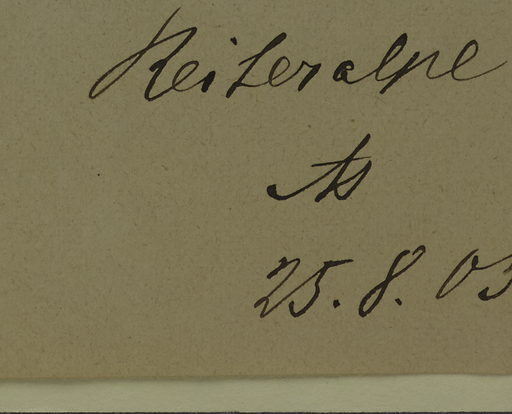 Reiteralpe
As
25. 8. 03